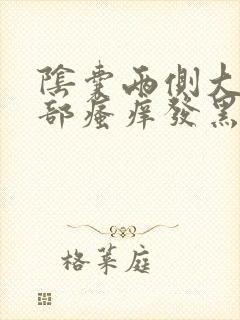 陰囊兩側大
部瘙痒發黑
格菜庭